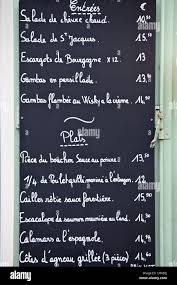 Entrées €
Salade de chèvre chaud. 10,50
Salade de St Jacques. 15,50
Escargots de Bourgogne x 12. 13
Gambas en persillade. 13,50
Gambas flambée au Wisky à la crème 14,50
Plats
Pièce du boucher Sauce au poivre 13,50
1/4 de Poulet grillé mariné à l'estragon. 12,50
Cailles sauce forestière.
Escalope de saumon meunière au lard.
Calamars à l'espagnole. 14,50
Côtes d'agneau grillée (3 pièces)
alamy